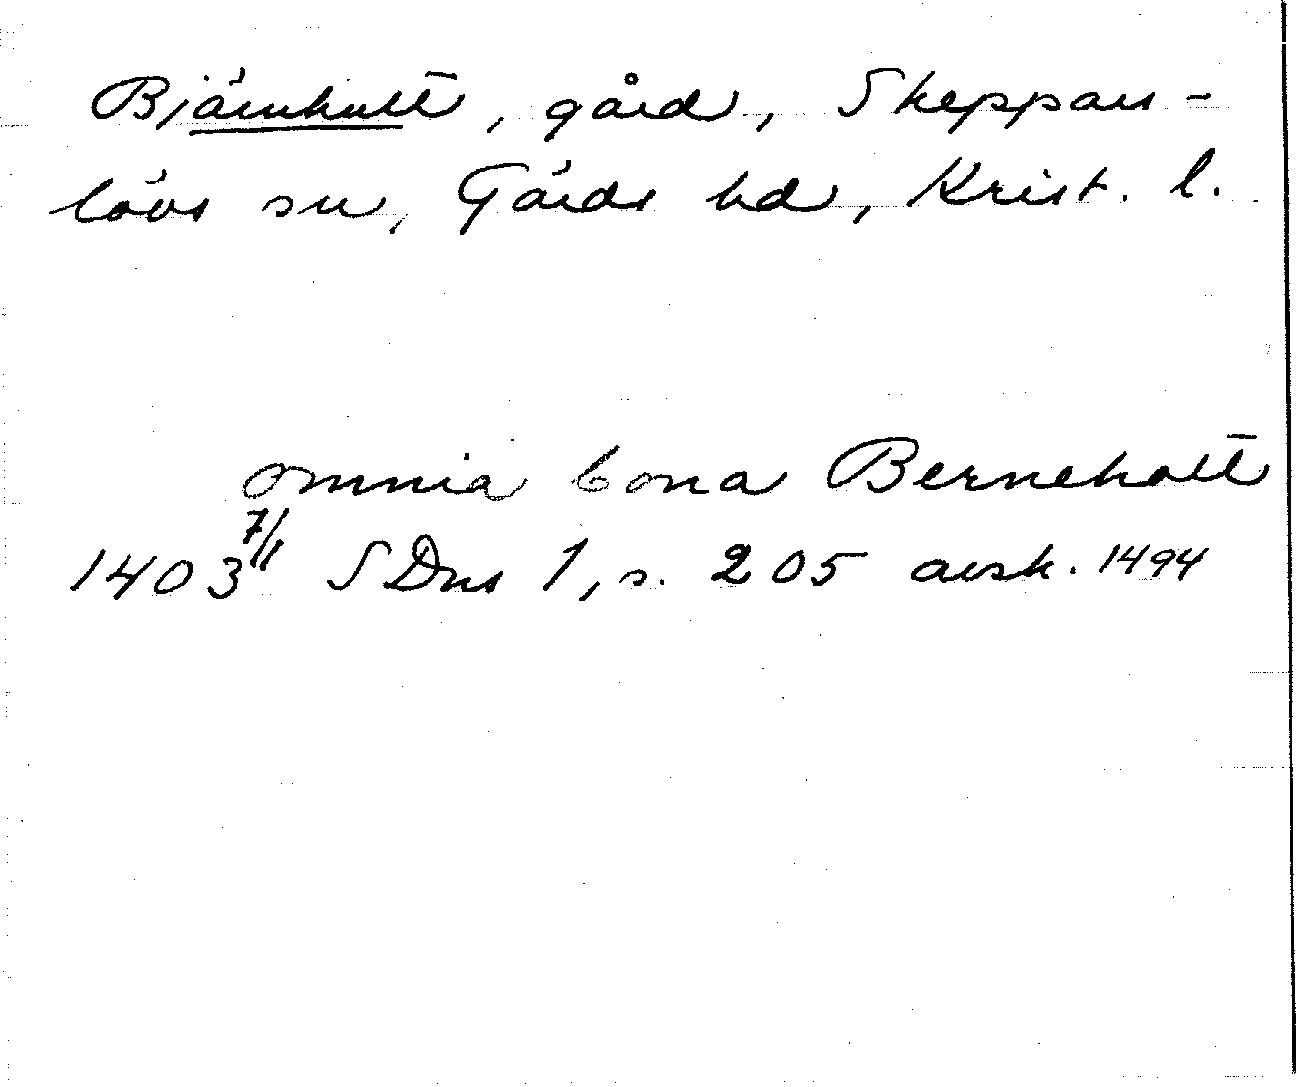 Bjärnhult, gård, Skeppars-
lövs sn, Gärds hd, Krist. l.
omnia bona Berneholt
1403 7/11 SDns 1, s. 205 avsk. 1494